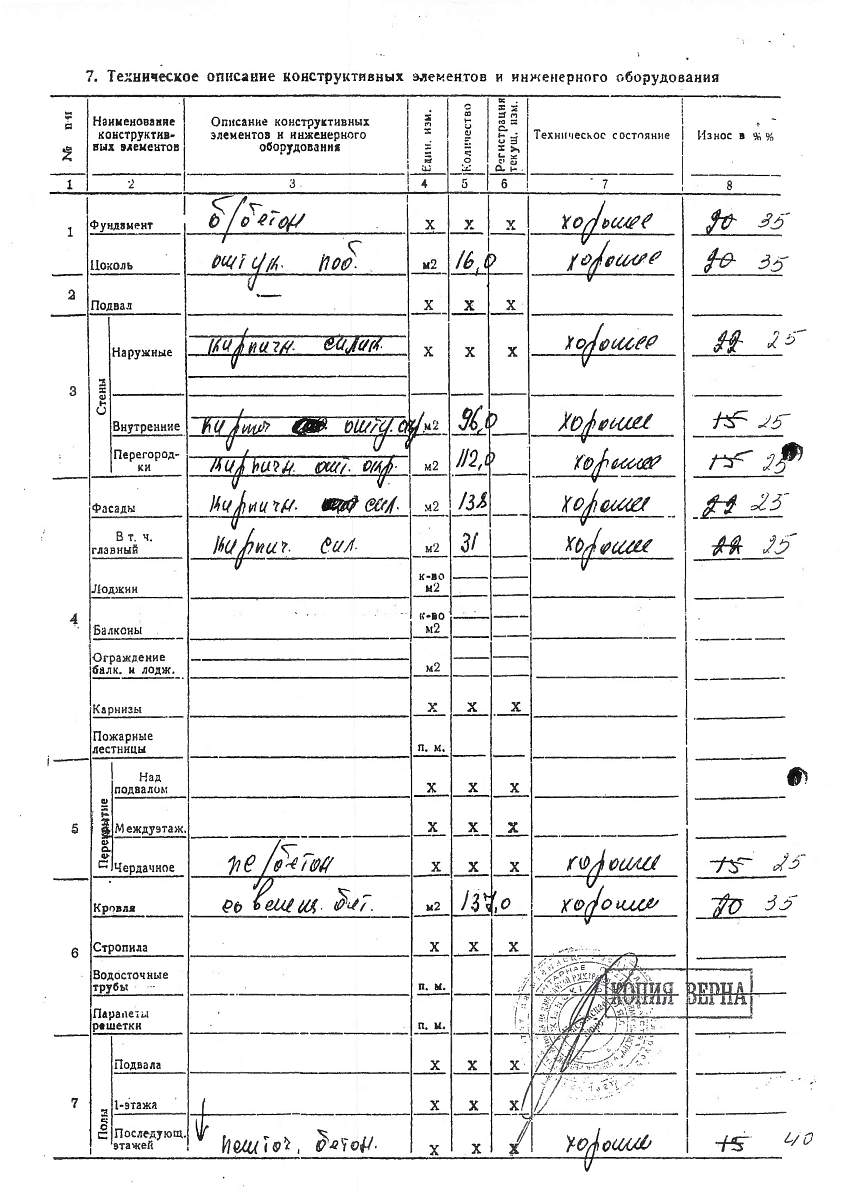 7. Техническое описание конструктивных элементов и инженерного оборудования
№ п-п
Наименование конструктив-вых элементов
Описание конструктивных элементов и инженерного оборудования
Един. изм.
Количество
Регистрация текущ. изм.
Техническое состояние
Износ в %%
1 2 3 4 5 6 7 8
1 Фундамент б/бетон X X X хорошее 20 35
Цоколь оштук. поб. м2 16,0 хорошее 20 35
2 Подвал — X X X
3 Стены
Наружные кирпичн. силик. X X X хорошее 22 25
Внутренние кирпич оштук. м2 96,0 хорошее 15 25
Перегород-ки кирпичн. ошт. окр. м2 112,0 хорошее 15 25
4
Фасады кирпичн. сил. м2 138 хорошее 22 25
В т. ч. главный кирпич. сил. м2 31 хорошее 22 25
Лоджии к-во м2
Балконы к-во м2
Ограждение балк. и лодж. м2
Карнизы X X X
Пожарные лестницы п. м.
5 Перекрытие
Над подвалом X X X
Междуэтаж. X X X
Чердачное ж/бетон X X X хорошее 15 25
6
Кровля совмещ. бит. м2 137,0 хорошее 20 35
Стропила X X X
Водосточные трубы п. м.
Парапеты решетки п. м.
КОПИЯ ВЕРНА
7 Полы
Подвала X X X
1-этажа X X X
Последующ. этажей бетон. X X X хорошее 15 40